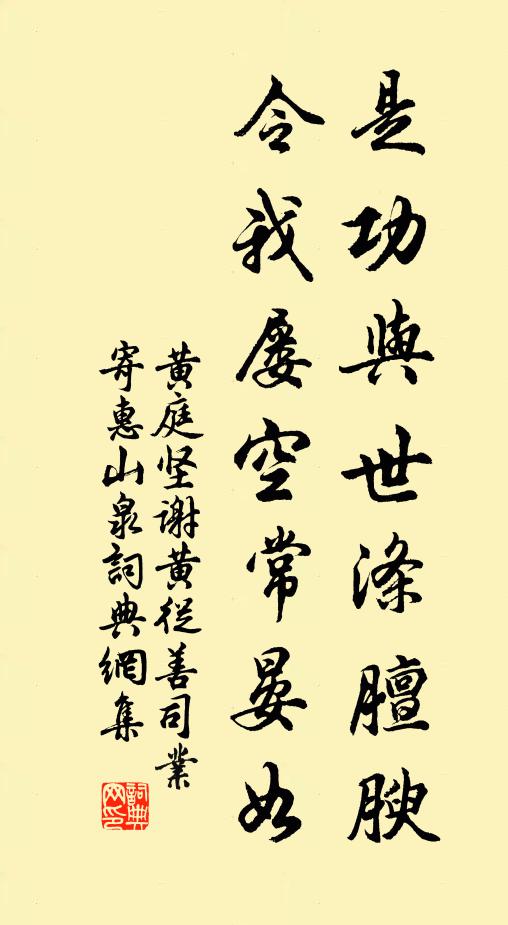 是功與世滌膻腴
令我屡空常晏如
黄庭坚謝黄從善司業
寄惠山泉詞典網集
詞典網印